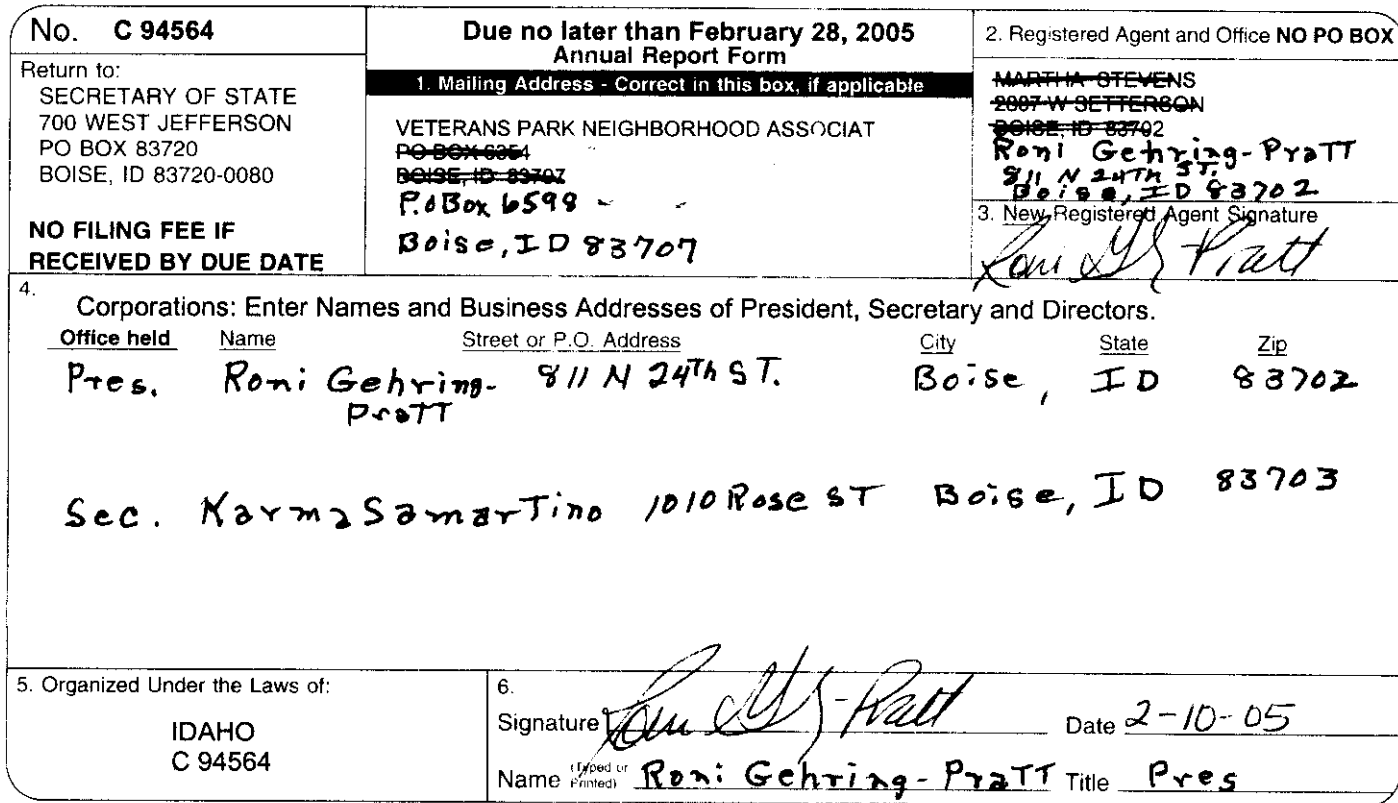 No. C 94564
Return to:
SECRETARY OF STATE
700 WEST JEFFERSON
PO BOX 83720
BOISE, ID 83720-0080
NO FILING FEE IF
RECEIVED BY DUE DATE
Due no later than February 28, 2005
Annual Report Form
1. Mailing Address - Correct in this box, if applicable
VETERANS PARK NEIGHBORHOOD ASSOCIAT
PO BOX 6354
BOISE, ID 83707
P.O Box 6598
Boise, ID 83707
2. Registered Agent and Office NO PO BOX
MARTHA STEVENS
BOISE, ID 83702
Roni Gehring-Pratt
811 N 24Th ST.
Boise, ID 83702
3. New Registered Agent Signature
4.
Corporations: Enter Names and Business Addresses of President, Secretary and Directors.
Office held Name Street or P.O. Address City State Zip
Pres. Roni Gehring- 811 N 24Th ST. Boise, ID 83702
Pratt
Sec. Karma Samartino 1010 Rose ST Boise, ID 83703
5. Organized Under the Laws of:
IDAHO
C 94564
6.
Signature Date 2-10-05
Name (Typed or Printed) Roni Gehring-Pratt Title Pres